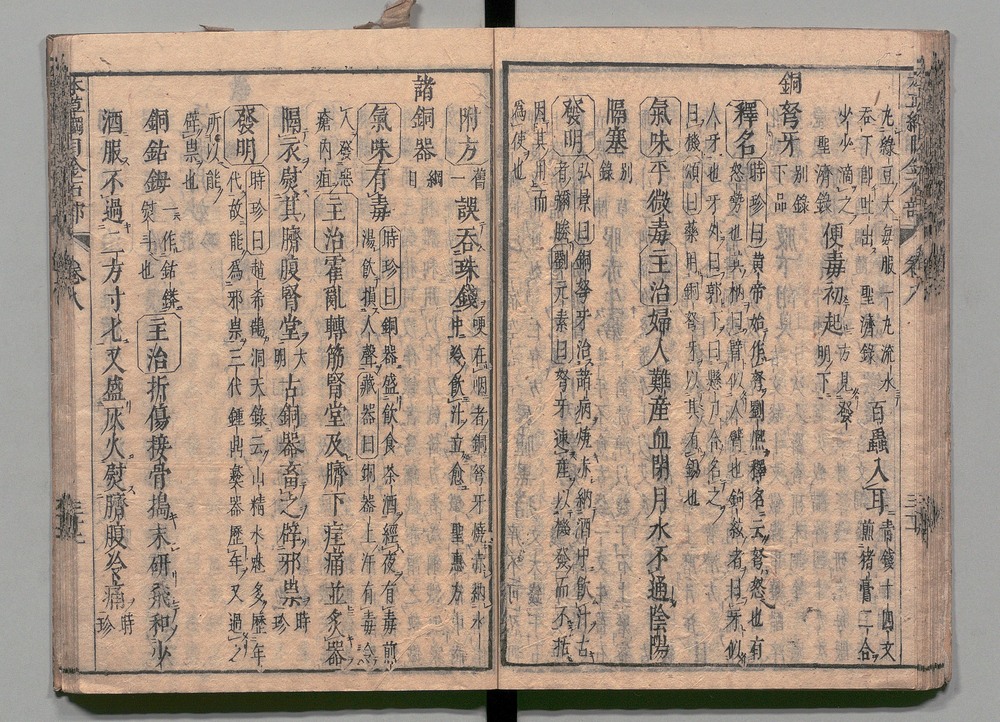 丸綠豆大每服一丸流水
吞下卽吐出聖濟錄 百蟲入耳 青錢十四文煎猪膏二合
少少滴之聖濟錄 便毒初起 方見發明下
銅弩牙 別錄下品
釋名 時珍曰黃帝始作弩劉熙釋名云弩怒也有
怒勢也其柄曰臂似人臂也鉤絃者曰牙似
人牙也牙外曰郭下曰懸刀合名之
曰機頌曰藥用銅弩牙以其有錫也
氣味平微毒主治婦人難產血閉月水不通陰陽
隔塞 別錄
發明 弘景曰銅弩牙治諸病燒赤納酒中飲汁古
者彌勝劉元素曰弩牙速產以機發而不括
因其用而
爲使也
附方 舊一 誤吞珠錢 哽在咽者銅弩牙燒赤納水中冷飲汁立愈 聖惠方
諸銅器 綱目
氣味有毒 時珍曰銅器盛飲食茶酒經夜有毒煎
湯飲損人聲藏器曰銅器上汗有毒令
人發惡瘡內疽 主治霍亂轉筋腎堂及臍下疰痛並炙器
隔衣熨其臍腹腎堂 大明 古銅器畜之辟邪祟 時珍
發明 時珍曰趙希鵠洞天錄云山精水魅多歷年
代故能爲邪祟三代鍾鼎彝器歷年又過之
所以能
辟祟也
銅鈷鉧 一作鈷𨫼熨斗也 主治折傷接骨搗末研飛和少
酒服不過二方寸匕又盛灰火熨臍腹冷痛 時珍